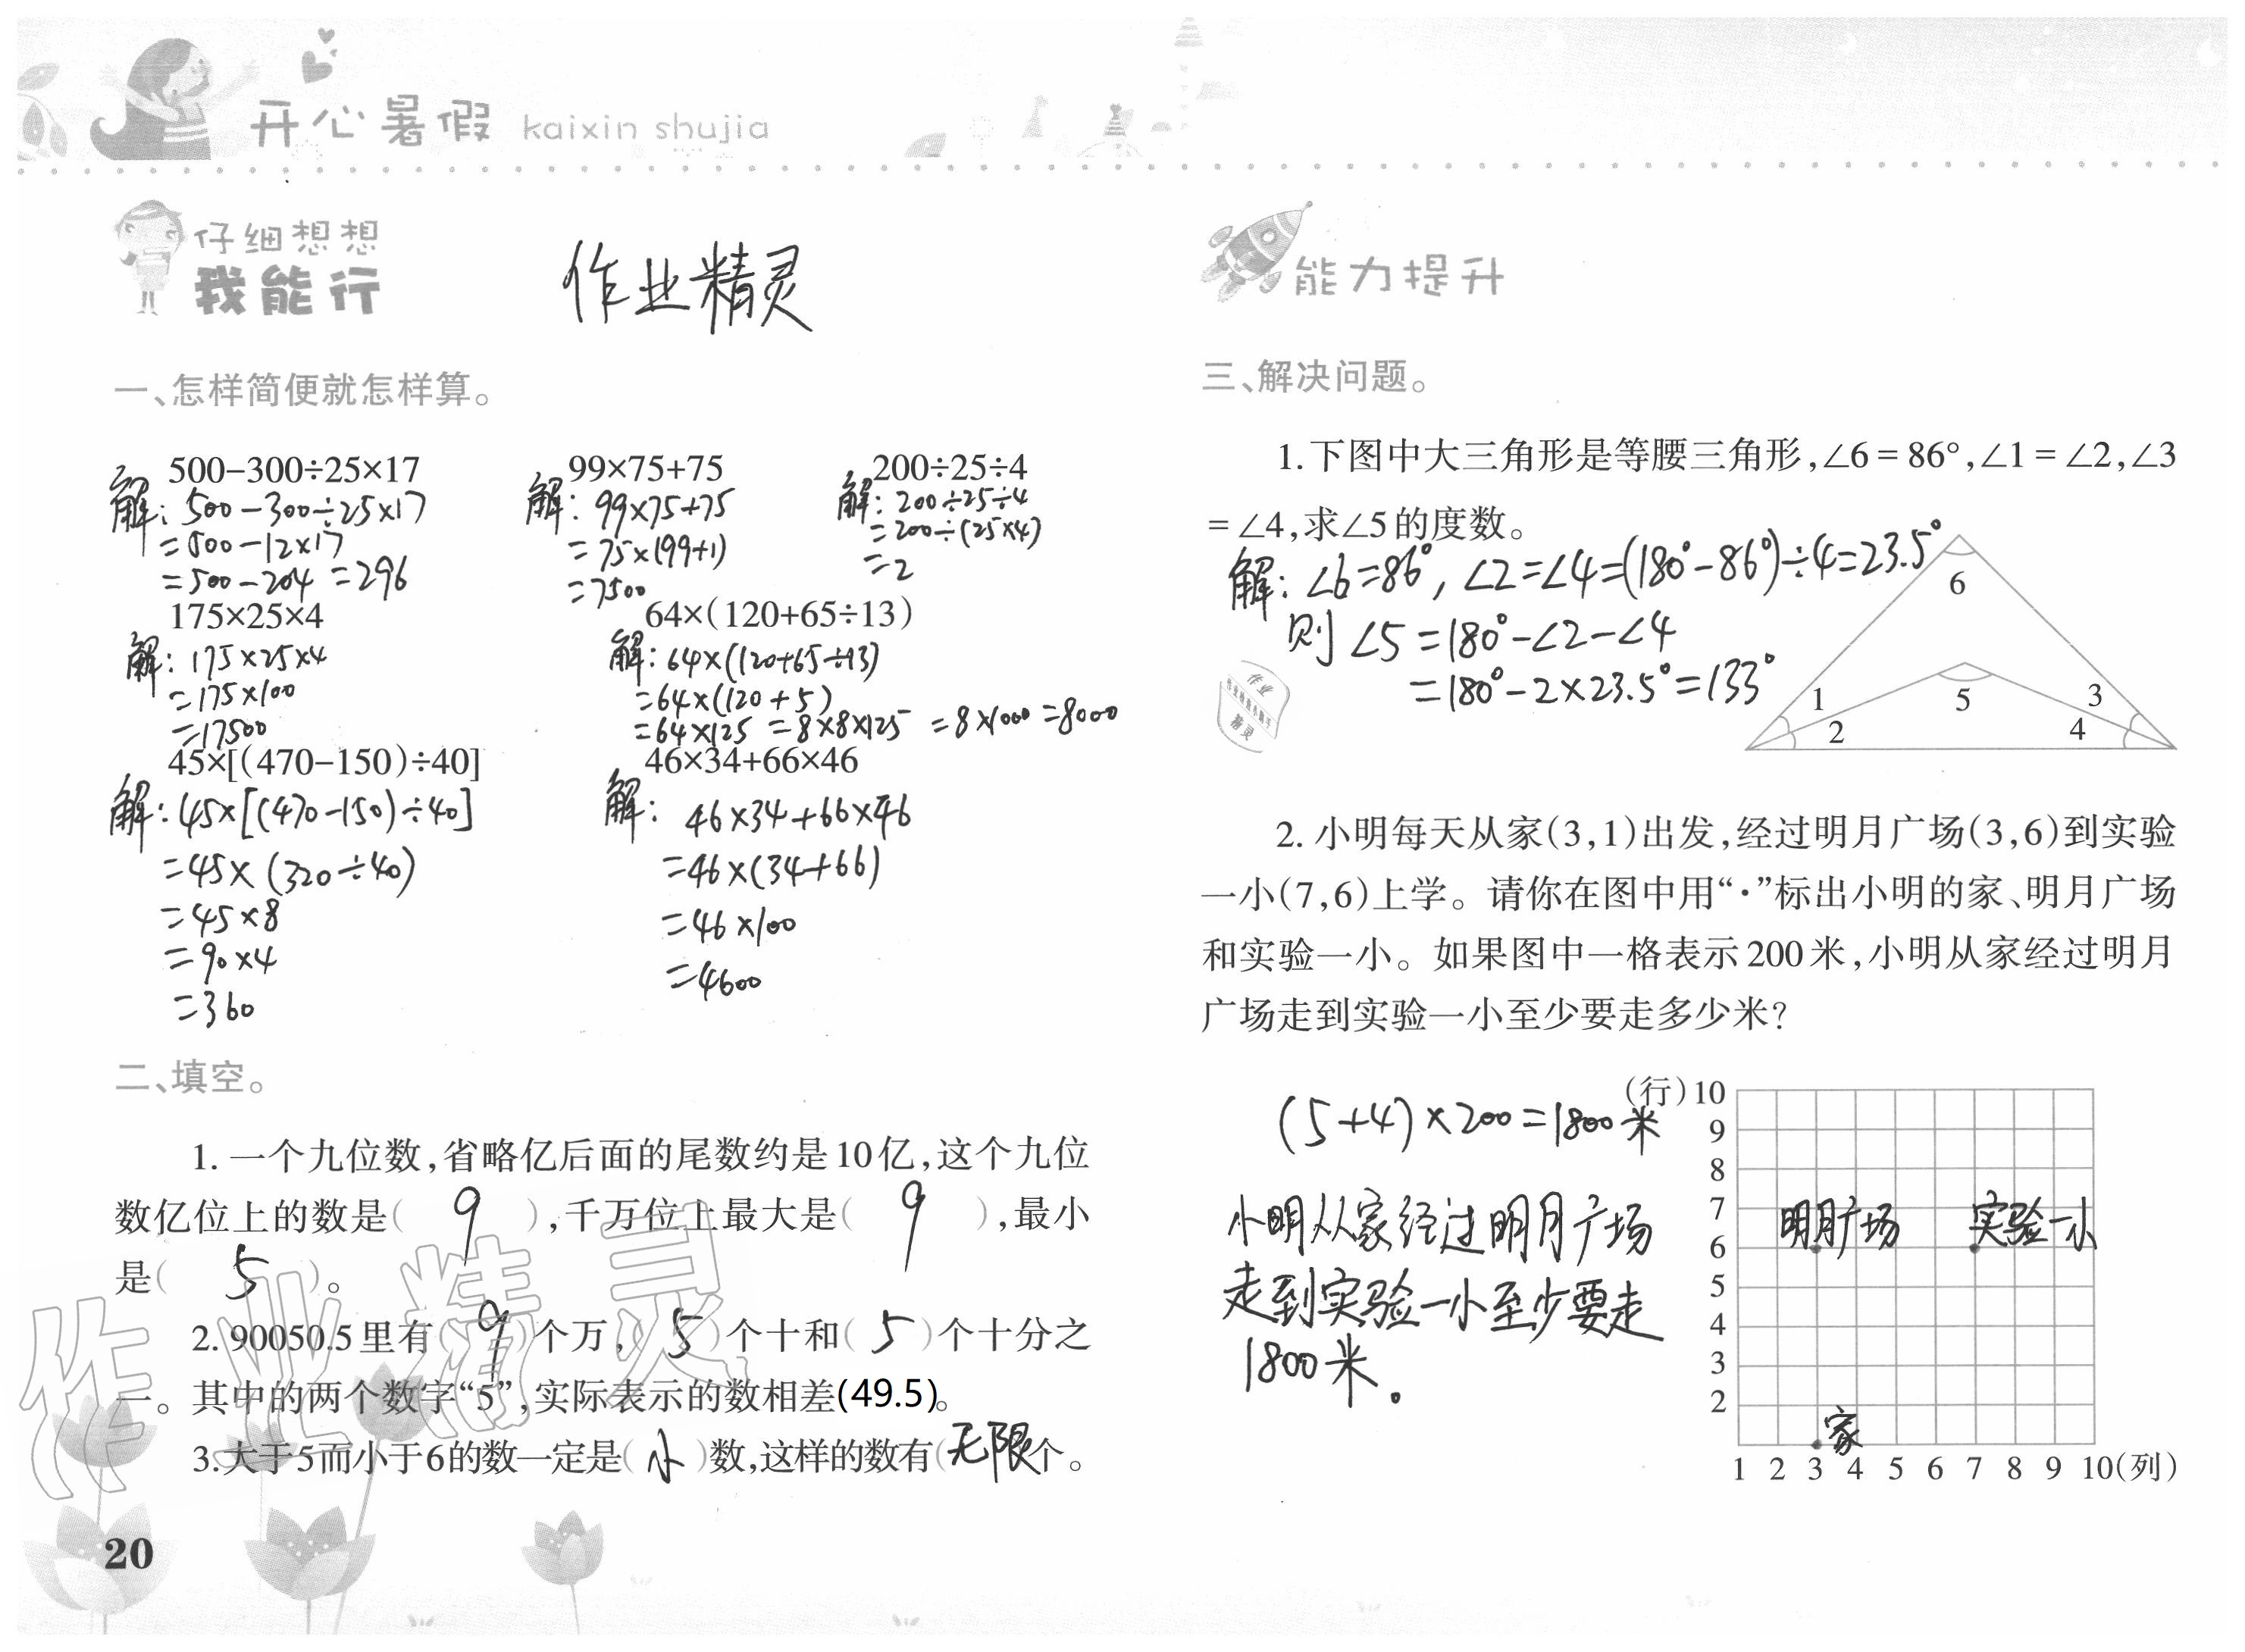 开心暑假 kaixin shujia
仔细想想
我能行
作业精灵
一、怎样简便就怎样算。
500−300÷25×17
解: 500−300÷25×17
=500−12×17
=500−204 =296
99×75+75
解: 99×75+75
=75×(99+1)
=7500
200÷25÷4
解: 200÷25÷4
=200÷(25×4)
=2
175×25×4
解: 175×25×4
=175×100
=17500
64×(120+65÷13)
解: 64×(120+65÷13)
=64×(120+5)
=64×125 =8×8×125 =8×1000 =8000
45×[(470−150)÷40]
解: 45×[(470−150)÷40]
=45×(320÷40)
=45×8
=90×4
=360
46×34+66×46
解: 46×34+66×46
=46×(34+66)
=46×100
=4600
二、填空。
1. 一个九位数,省略亿后面的尾数约是10亿,这个九位
数亿位上的数是( 9 ),千万位上最大是( 9 ),最小
是( 5 )。
2. 90050.5里有( 9 )个万,( 5 )个十和( 5 )个十分之
一。其中的两个数字“5”,实际表示的数相差(49.5)。
3. 大于5而小于6的数一定是( 小 )数,这样的数有(无限)个。
作业精灵
20
能力提升
三、解决问题。
1. 下图中大三角形是等腰三角形,∠6=86°,∠1=∠2,∠3
=∠4,求∠5的度数。
解: ∠6=86°, ∠2=∠4=(180°−86°)÷4=23.5°
则 ∠5=180°−∠2−∠4
=180°−2×23.5°=133°
6
1 5 3
2 4
作业
精灵
2. 小明每天从家(3,1)出发,经过明月广场(3,6)到实验
一小(7,6)上学。请你在图中用“·”标出小明的家、明月广场
和实验一小。如果图中一格表示200米,小明从家经过明月
广场走到实验一小至少要走多少米?
(5+4)×200=1800米
小明从家经过明月广场
走到实验一小至少要走
1800米。
(行)10
9
8
7
6
5
4
3
2
明月广场 实验一小
家
1 2 3 4 5 6 7 8 9 10(列)